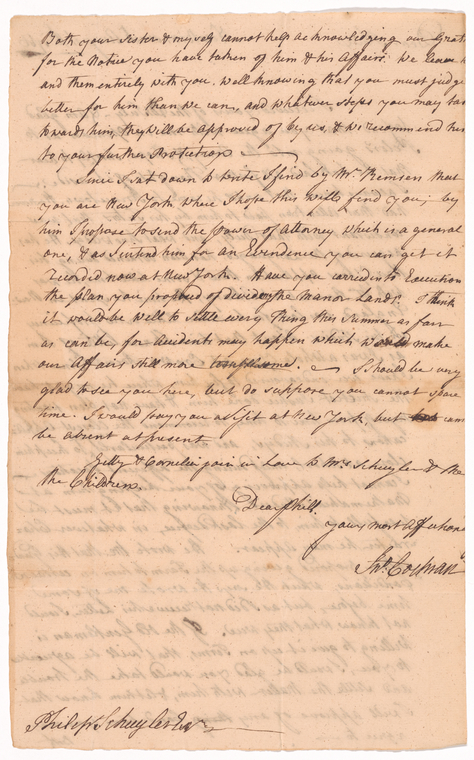 Both your Sister & myself cannot help acknowledging our Grati
for the Notice you have taken of him & his Affairs. We leave h
and them entirely with you. Well knowing that you must judge
better for him than we can, and whatever steps you may tak
towards him, they will be approved of by us, & we recommend him
to your further Protection
Since I sat down to write I find by Mr. Remsen that
you are New York where I hope this will find you; by
him I propose to send the Power of Attorney which is a general
one, & as I intend him for an Evendence you can get it
recorded now at New York. Have you carried into Execution
the Plan you proposed of divideing the Manor Lands. I think
it would be well to settle every Thing this Summer as far
as can be, for Accidents may happen which would make
our Affairs still more troublesome. I should be very
glad to see you here, but do suppose you cannot spare
time. I would pay you a Visit at New York, but cann
be absent at present
Gitty & Cornelia join in Love to Mrs. Schuyler & the
the Children.
Dear Phill.
yours most Affectiona
Jno. Cochran
Philip Schuyler Esqr.